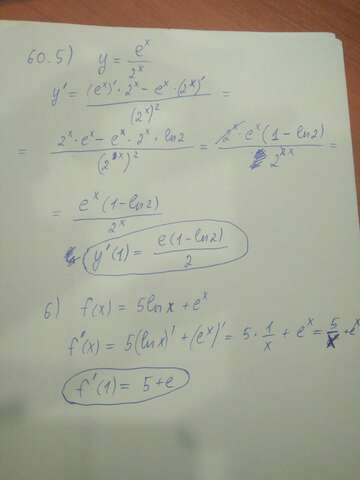 60.5) y = e^x / 2^x
y' = ((e^x)' · 2^x − e^x · (2^x)') / (2^x)^2 =
= (2^x · e^x − e^x · 2^x · ln2) / (2^x)^2 = (2^x · e^x (1 − ln2)) / 2^2x =
= e^x (1 − ln2) / 2^x
y'(1) = e(1 − ln2) / 2
6) f(x) = 5lnx + e^x
f'(x) = 5(lnx)' + (e^x)' = 5 · 1/x + e^x = 5/x + e^x
f'(1) = 5 + e